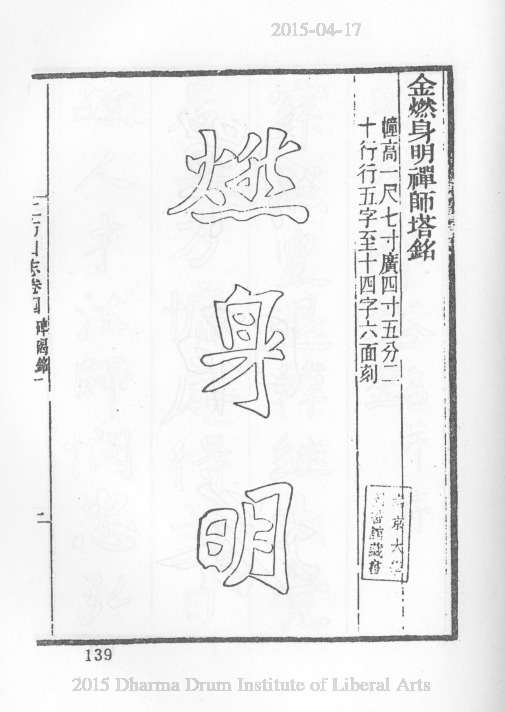 2015-04-17
金燃身明禪師塔銘
幢高一尺七寸廣四寸五分二
十行行五字至十四字六面刻
北京大學
圖書館藏書
燃身明
上方山志卷四 碑碣銘一
二
139
2015 Dharma Drum Institute of Liberal Arts